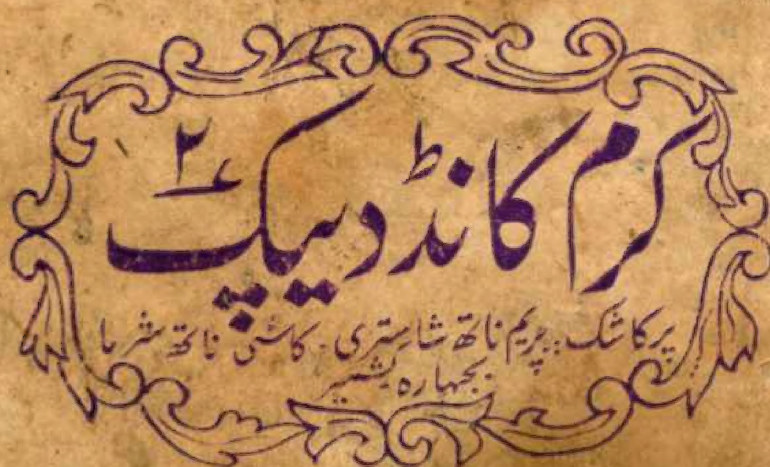 کرم کانڈ دیپک ۲
پرکاشک:: پریم ناتھ شاستری۔ کاشی ناتھ شرما
بجبہارہ کشمیر